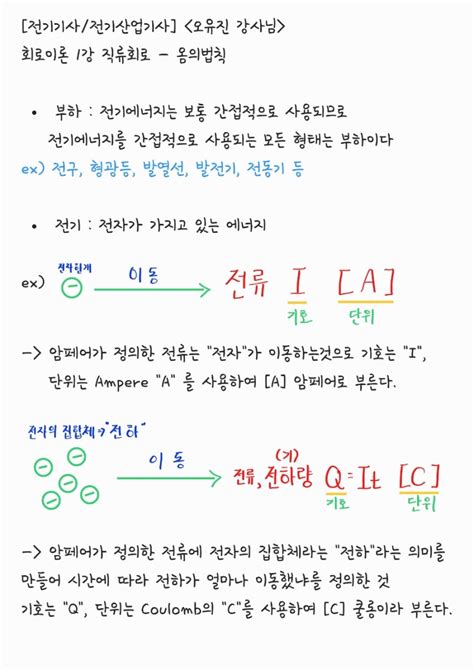 [전기기사/전기산업기사] <오유진 강사님>
회로이론 1강 직류회로 - 옴의법칙
• 부하 : 전기에너지는 보통 간접적으로 사용되므로
전기에너지를 간접적으로 사용되는 모든 형태는 부하이다
ex) 전구, 형광등, 발열선, 발전기, 전동기 등
• 전기 : 전자가 가지고 있는 에너지
ex) 전자한개 이동 전류 I [A]
기호 단위
-> 암페어가 정의한 전류는 "전자"가 이동하는것으로 기호는 "I",
단위는 Ampere "A" 를 사용하여 [A] 암페어로 부른다.
전자의 집합체→"전하"
이동 전류,전하량 (기) Q=It [C]
기호 단위
-> 암페어가 정의한 전류에 전자의 집합체라는 "전하"라는 의미를
만들어 시간에 따라 전하가 얼마나 이동했냐를 정의한 것
기호는 "Q", 단위는 Coulomb의 "C"를 사용하여 [C] 쿨롱이라 부른다.